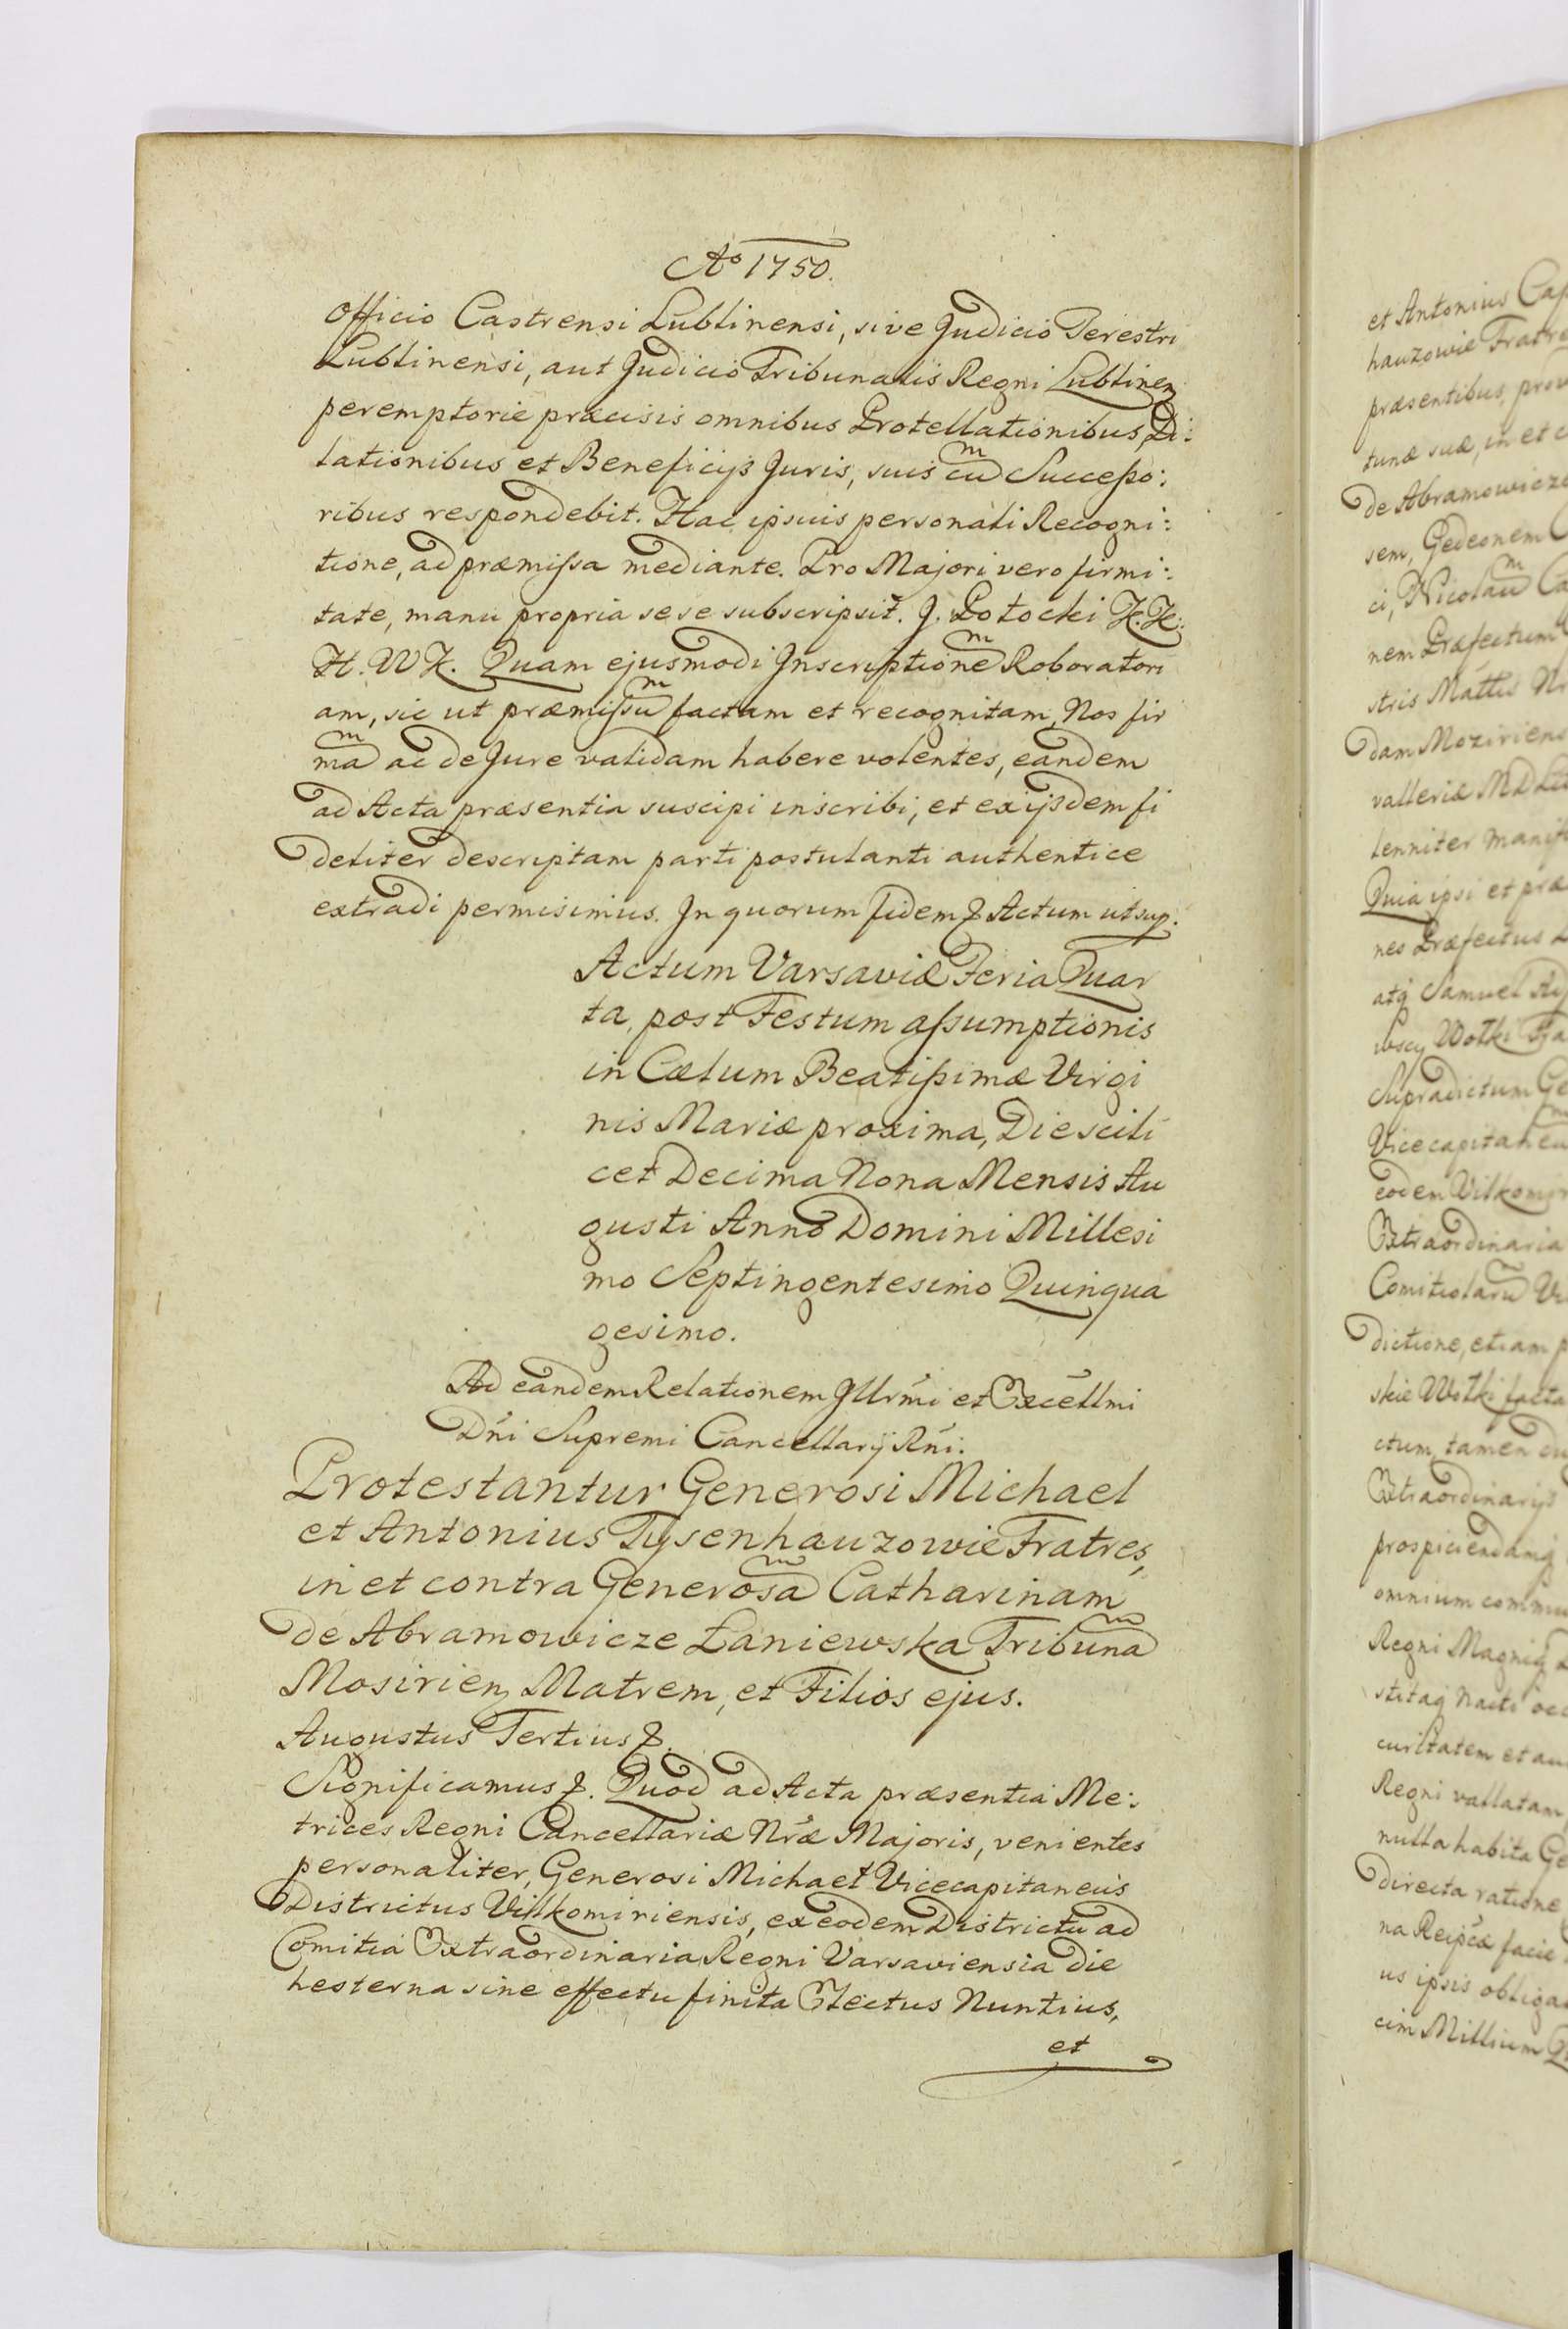 Aº 1750.
Officio Castrensi Lublinensi, sive Judicio Terestri
Lublinensi, aut Judicio Tribunalis Regni Lublinen
peremptorie præcisis omnibus Protellationibus, Di:
lationibus et Beneficijs Juris, suis cũ Successo:
ribus respondebit. Hac ipsuis personali Recogni:
tione, ad præmissa mediante. Pro Majori vero firmi:
tate, manu propria sese subscripsit. J. Potocki K. K:
H. W K. Quam ejusmodi Inscriptionẽ Roboratori
am, sic ut præmissũ factam et recognitam, Nos fir
mã ac de Jure validam habere volentes, eandem
ad Acta præsentia suscipi inscribi, et ex ijsdem fi
deliter descriptam parti postulanti authentice
extradi permisimus. In quorum fidem & Actum ut sup.
Actum Varsaviæ Feria Quar
ta, post Festum assumptionis
in Cælum Beatissimæ Virgi
nis Mariæ proxima, Die scili
cet Decima Nona Mensis Au
gusti Anno Domini Millesi
mo Septingentesimo Quinqua
gesimo.
Ad eandem Relationem Illrmi et Excellmi
Dni Supremi Cancellarij Rni:
Protestantur Generosi Michael
et Antonius Tysenhauzowie Fratres,
in et contra Generosã Catharinam
de Abramowicze Łaniewska Tribunã
Mosirien, Matrem, et Filios ejus.
Augustus Tertius &.
Significamus &. Quod ad Acta præsentia Me:
trices Regni Cancellariæ Nræ Majoris, venientes
personaliter, Generosi Michael Vicecapitaneus
Districtus Vilkomiriensis, ex eodem Districtu ad
Comitia Extraordinaria Regni Varsaviensia die
hesterna sine effectu finita Electus Nuntius,
et
et Antonius
hauzowie Fratre
præsentibus, prov
tunæ suæ, in et c
de Abramowicze
sem, Gedeonem
ci, Nicolaũ Ca
nem Præfectum
stris Mattis
dam Moziriens
valleriæ MD Lit
lenniter manif
Quia ipsi et præ
nes Præfectus
atq Samuel
wscy Wolki
Supradictum Ge
Vicecapitaneũ
eodem Vilkomir
Extraordinaria
Comitiolarũ Vi
dictione, etiam p
skie Wolki facta
ctum, tamen
Extraordinarijs
prospiciendamq
omnium commu
Regni Magniq
stitaq nacti occ
curitatem et au
Regni vallatam,
nulla habita Ge
directa ratione
na Reipcæ facie
us ipsis obliga
cim Millium